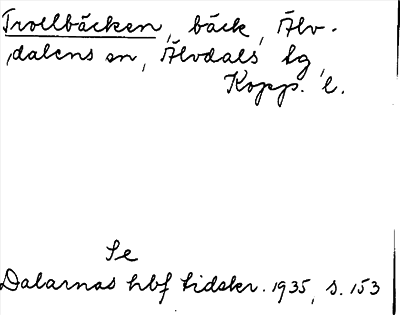 Trollbäcken, bäck, Älv-
dalens sn, Älvdals tg,
Kopp. l.
Se
Dalarnas hbf tidskr. 1935, s. 153